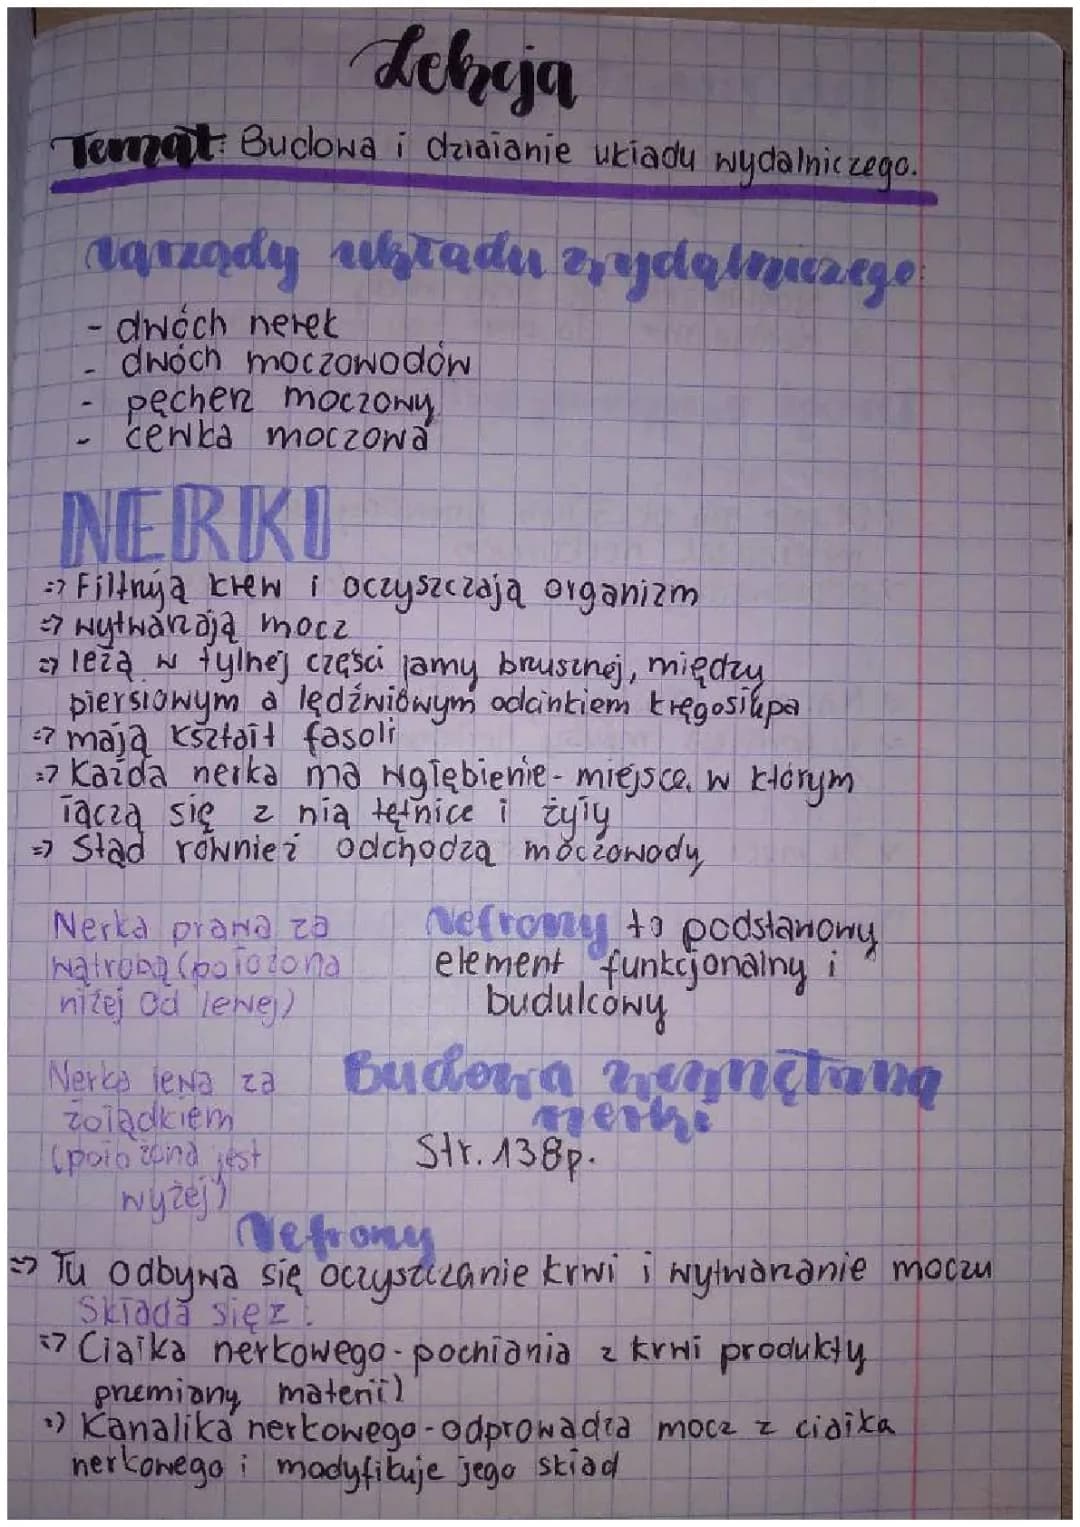 Lekcja
Temat: Budowa i działanie układu wydalniczego.
Narządy układu wydalniczego:
- dwóch nerek
- dwóch moczowodów
- pęcherz moczowy
- cewka moczowa
NERKI
=> Filtrują krew i oczyszczają organizm
=> wytwarzają mocz
=> leżą w tylnej części jamy brusznej, między
piersiowym a lędźwiowym odcinkiem kręgosłupa
=> mają kształt fasoli
=> Każda nerka ma wgłębienie - miejsce, w którym
łączą się z nią tętnice i żyły
=> Stąd również odchodzą moczowody
Nerka prawa za
wątrobą (położona
niżej od lewej)
Nefrony to podstawowy
element funkcjonalny i
budulcowy
Nerka lewa za
żołądkiem
(położona jest
wyżej)
Budowa wewnętrzna
nerki
Str. 138p.
Nefrony
=> Tu odbywa się oczyszczanie krwi i wytwarzanie moczu
Składa się z:
=> Ciałka nerkowego - pochłania z krwi produkty
przemiany materii)
=> Kanalika nerkowego - odprowadza mocz z ciałka
nerkowego i modyfikuje jego skład